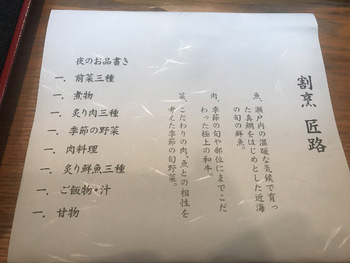 割烹 匠路
魚、瀬戸内の温暖な気候で育っ
た真鯛をはじめとした近海
の旬の鮮魚。
肉、季節の旬や部位にまでこだ
わった極上の和牛。
菜、こだわりの肉、魚との相性を
考えた季節の旬野菜。
夜のお品書き
一、前菜三種
一、煮物
一、炙り肉三種
一、季節の野菜
一、肉料理
一、炙り鮮魚三種
一、ご飯物・汁
一、甘物